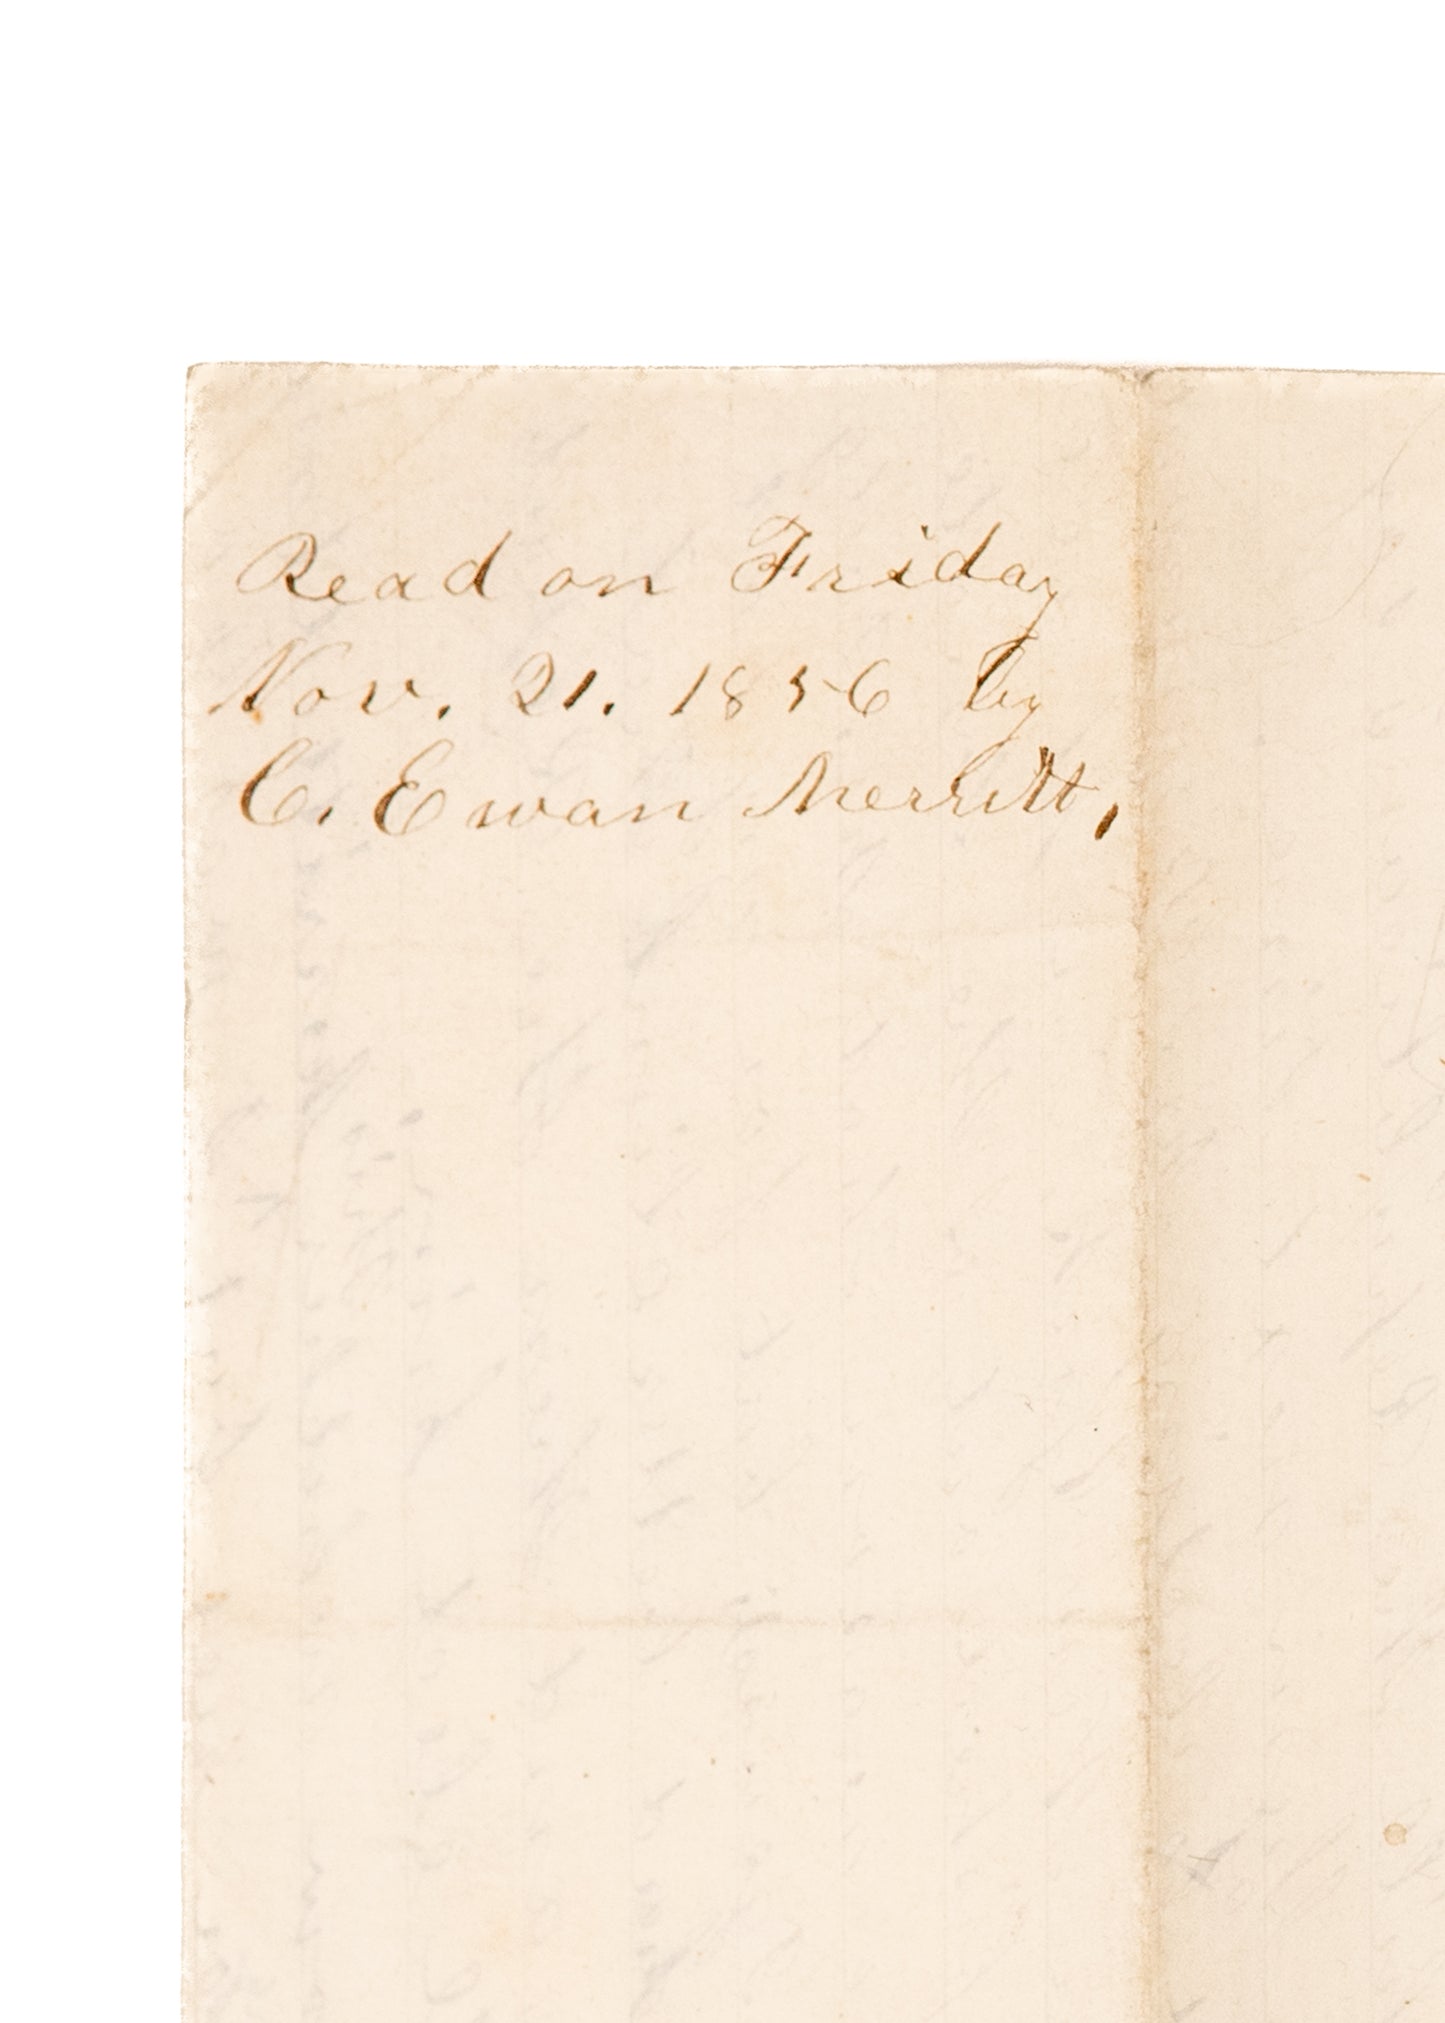 Read on Friday
Nov. 21. 1856 by
C. Ewan Merritt,